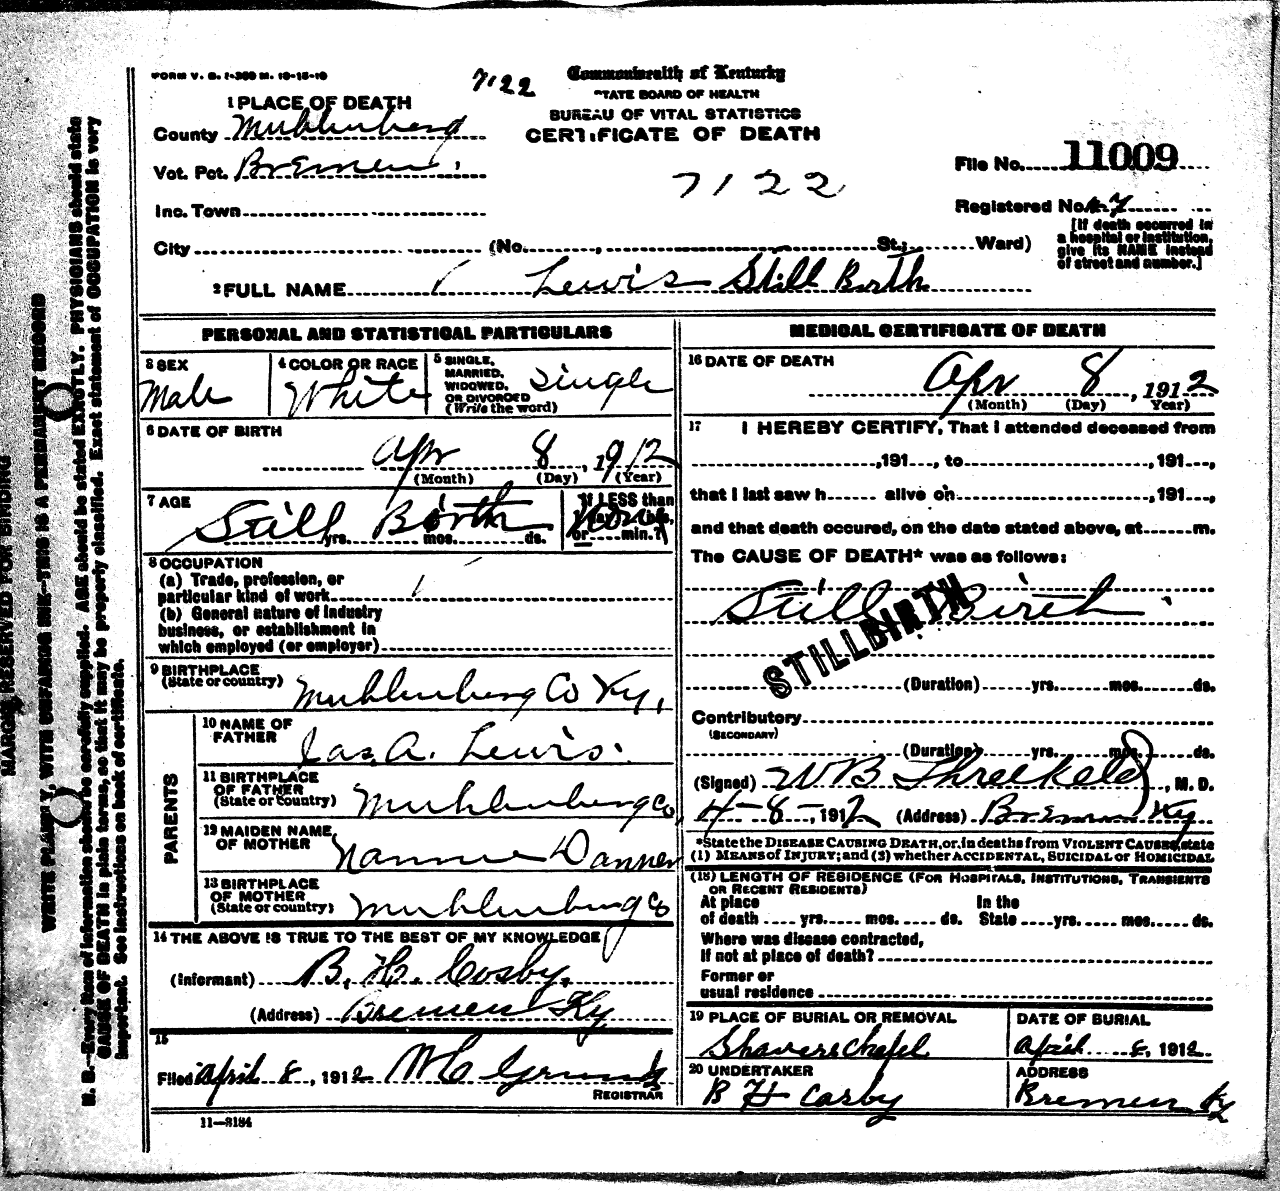 FORM V. S. 1-300 M. 10-15-10
7122
Commonwealth of Kentucky
STATE BOARD OF HEALTH
BUREAU OF VITAL STATISTICS
CERTIFICATE OF DEATH
1 PLACE OF DEATH
County Muhlenberg
Vot. Pct. Bremen
Inc. Town
City (No. , St.; Ward)
7122
File No. 11009
Registered No. 47
[If death occurred in
a hospital or institution,
give its NAME instead
of street and number.]
2 FULL NAME Lewis Still Birth
PERSONAL AND STATISTICAL PARTICULARS
3 SEX
Male
4 COLOR OR RACE
White
5 SINGLE,
MARRIED,
WIDOWED,
OR DIVORCED
(Write the word)
Single
6 DATE OF BIRTH
Apr 8, 1912
(Month) (Day) (Year)
7 AGE
Still Birth
yrs. mos. ds.
If LESS than
or min.?
8 OCCUPATION
(a) Trade, profession, or
particular kind of work
(b) General nature of industry
business, or establishment in
which employed (or employer)
9 BIRTHPLACE
(State or country) Muhlenberg Co Ky,
PARENTS
10 NAME OF
FATHER Jas. A. Lewis.
11 BIRTHPLACE
OF FATHER
(State or country) Muhlenberg Co,
12 MAIDEN NAME
OF MOTHER Nannie Danner
13 BIRTHPLACE
OF MOTHER
(State or country) Muhlenberg Co
14 THE ABOVE IS TRUE TO THE BEST OF MY KNOWLEDGE
(Informant) B. H. Cosby,
(Address) Bremen Ky
15
Filed April 8, 1912
REGISTRAR
11—3184
MEDICAL CERTIFICATE OF DEATH
16 DATE OF DEATH
Apr 8, 1912
(Month) (Day) Year)
17 I HEREBY CERTIFY, That I attended deceased from
,191 , to ,191 ,
that I last saw h alive on ,191 ,
and that death occured, on the date stated above, at m.
The CAUSE OF DEATH* was as follows:
Still Birth.
STILLBIRTH
(Duration) yrs. mos. ds.
Contributory
(SECONDARY)
(Duration) yrs. mos. ds.
(Signed) W B Threlkeld, M. D.
4-8-, 1912 (Address) Bremen Ky
*State the DISEASE CAUSING DEATH, or, in deaths from VIOLENT CAUSES, state
(1) MEANS of INJURY; and (2) whether ACCIDENTAL, SUICIDAL or HOMICIDAL
(18) LENGTH OF RESIDENCE (FOR HOSPITALS, INSTITUTIONS, TRANSIENTS
OR RECENT RESIDENTS)
At place In the
of death yrs. mos. ds. State yrs. mos. ds.
Where was disease contracted,
If not at place of death?
Former or
usual residence
19 PLACE OF BURIAL OR REMOVAL
Shavers Chapel
DATE OF BURIAL
April 8, 1912
20 UNDERTAKER
B H Carby
ADDRESS
Bremen Ky
MARGIN RESERVED FOR BINDING
WRITE PLAINLY, WITH UNFADING INK—THIS IS A PERMANENT RECORD
N. B.—Every item of information should be carefully supplied. AGE should be stated EXACTLY. PHYSICIANS should state
CAUSE OF DEATH in plain terms, so that it may be properly classified. Exact statement of OCCUPATION is very
important. See instructions on back of certificate.